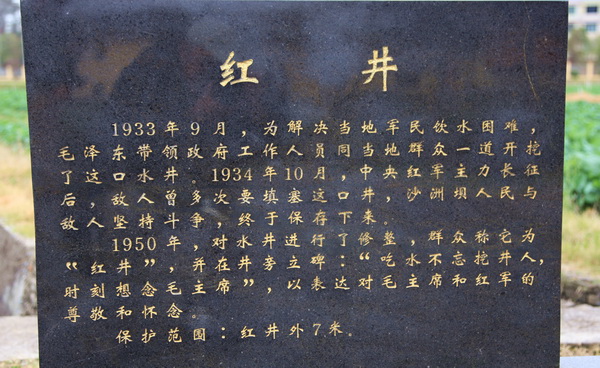 红 井
1933年9月，为解决当地军民饮水困难，
毛泽东带领政府工作人员同当地群众一道开挖
了这口水井。1934年10月，中央红军主力长征
后，敌人曾多次要填塞这口井，沙洲坝人民与
敌人坚持斗争，终于保存下来。
1950年，对水井进行了修整，群众称它为
“红井”，并在井旁立碑：“吃水不忘挖井人，
时刻想念毛主席”，以表达对毛主席和红军的
尊敬和怀念。
保护范围：红井外7米。